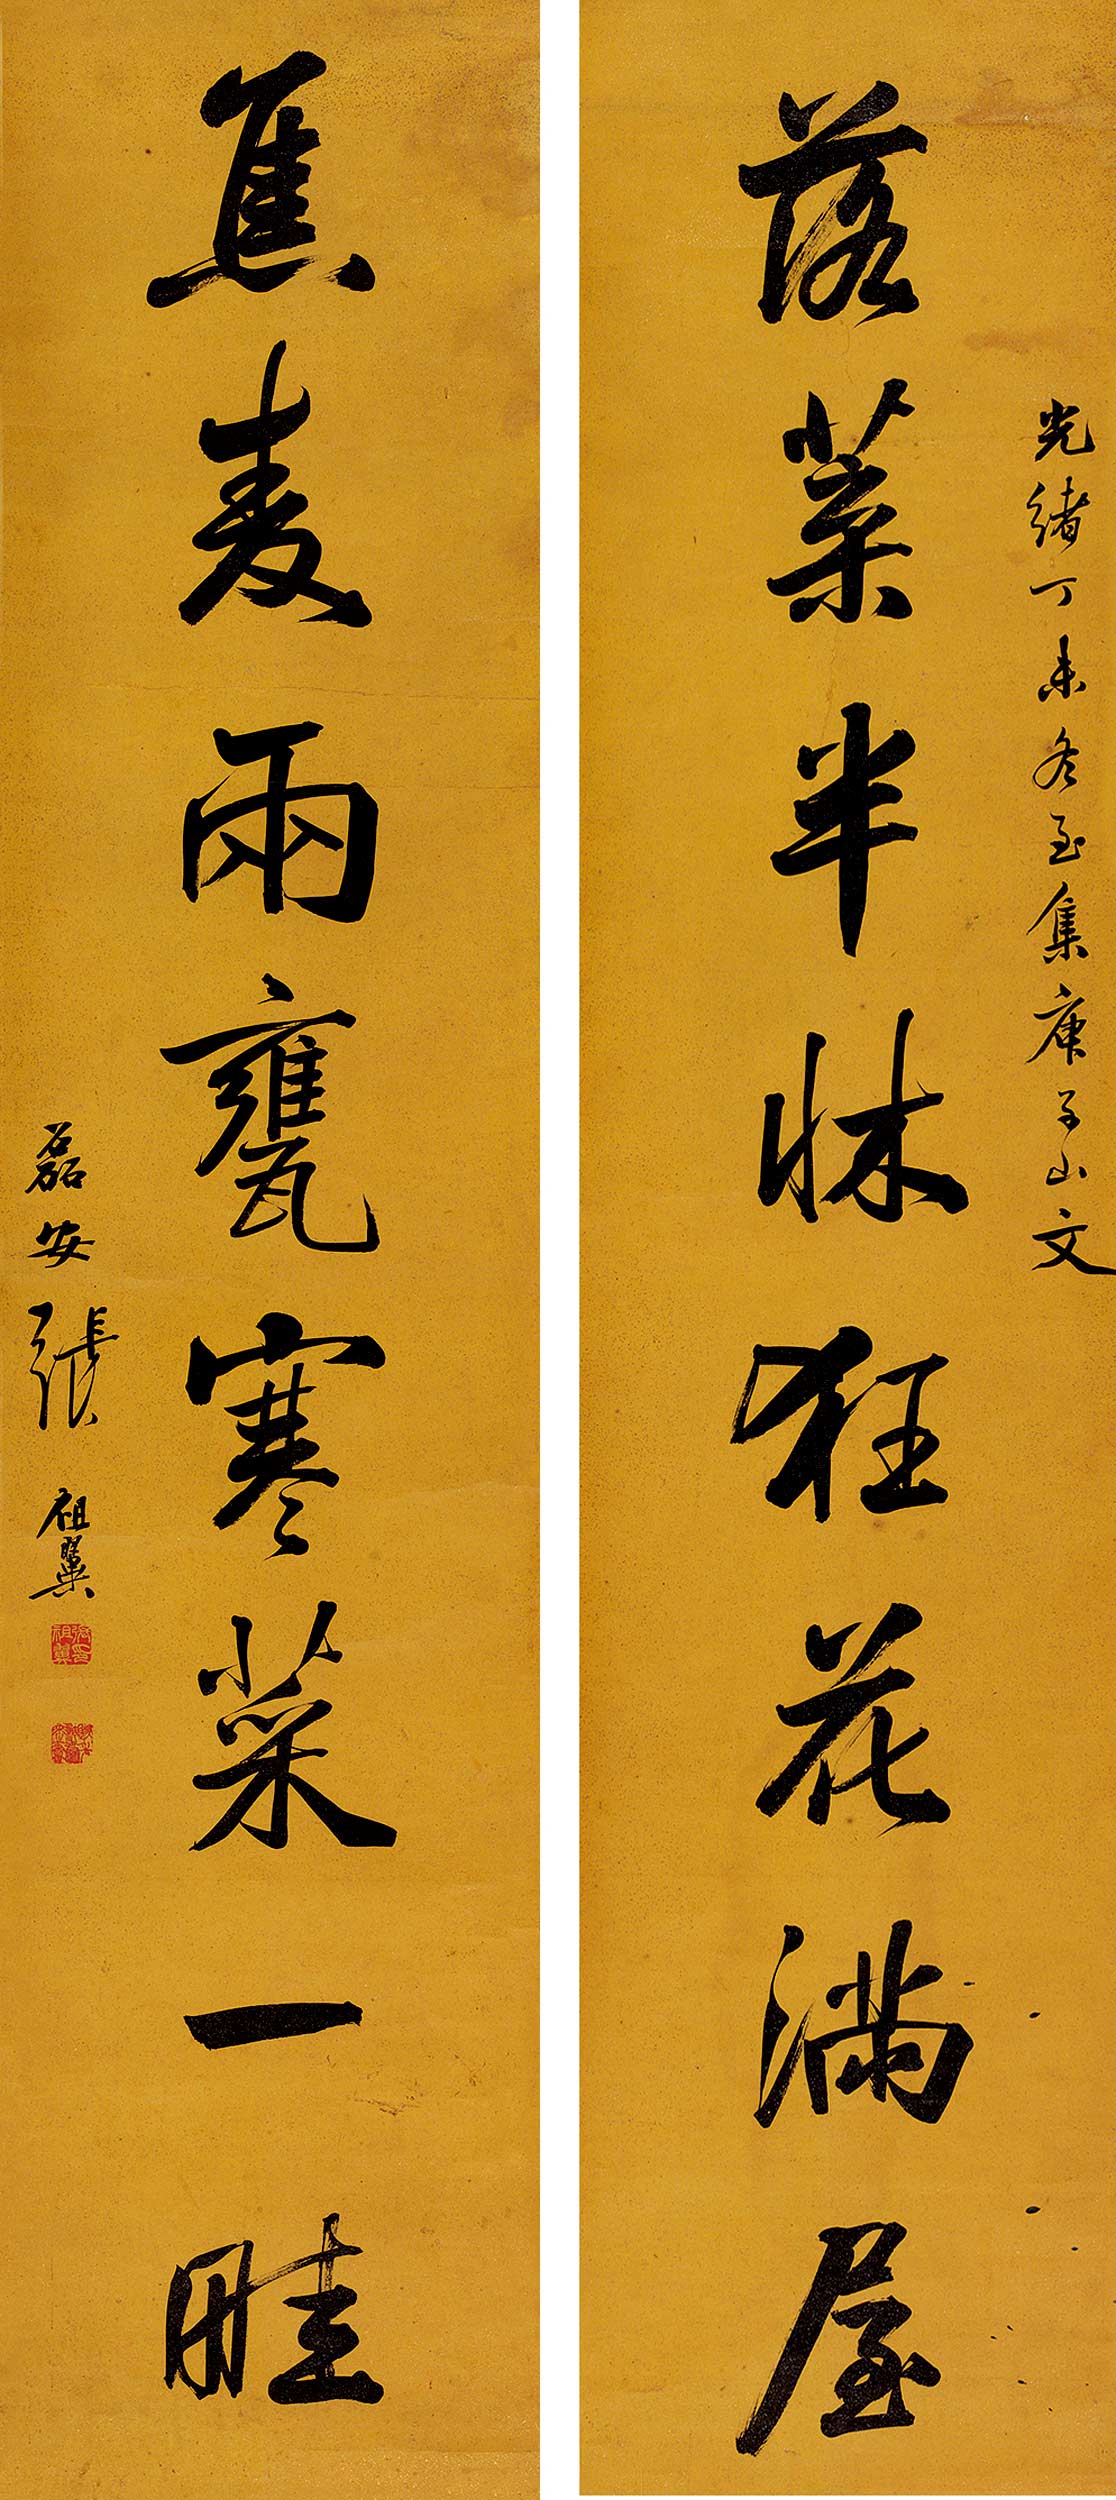 光緒丁未冬至集庾子山文
落葉半牀狂花滿屋
焦麥兩甕寒菜一畦
磊安張祖翼
張印祖翼